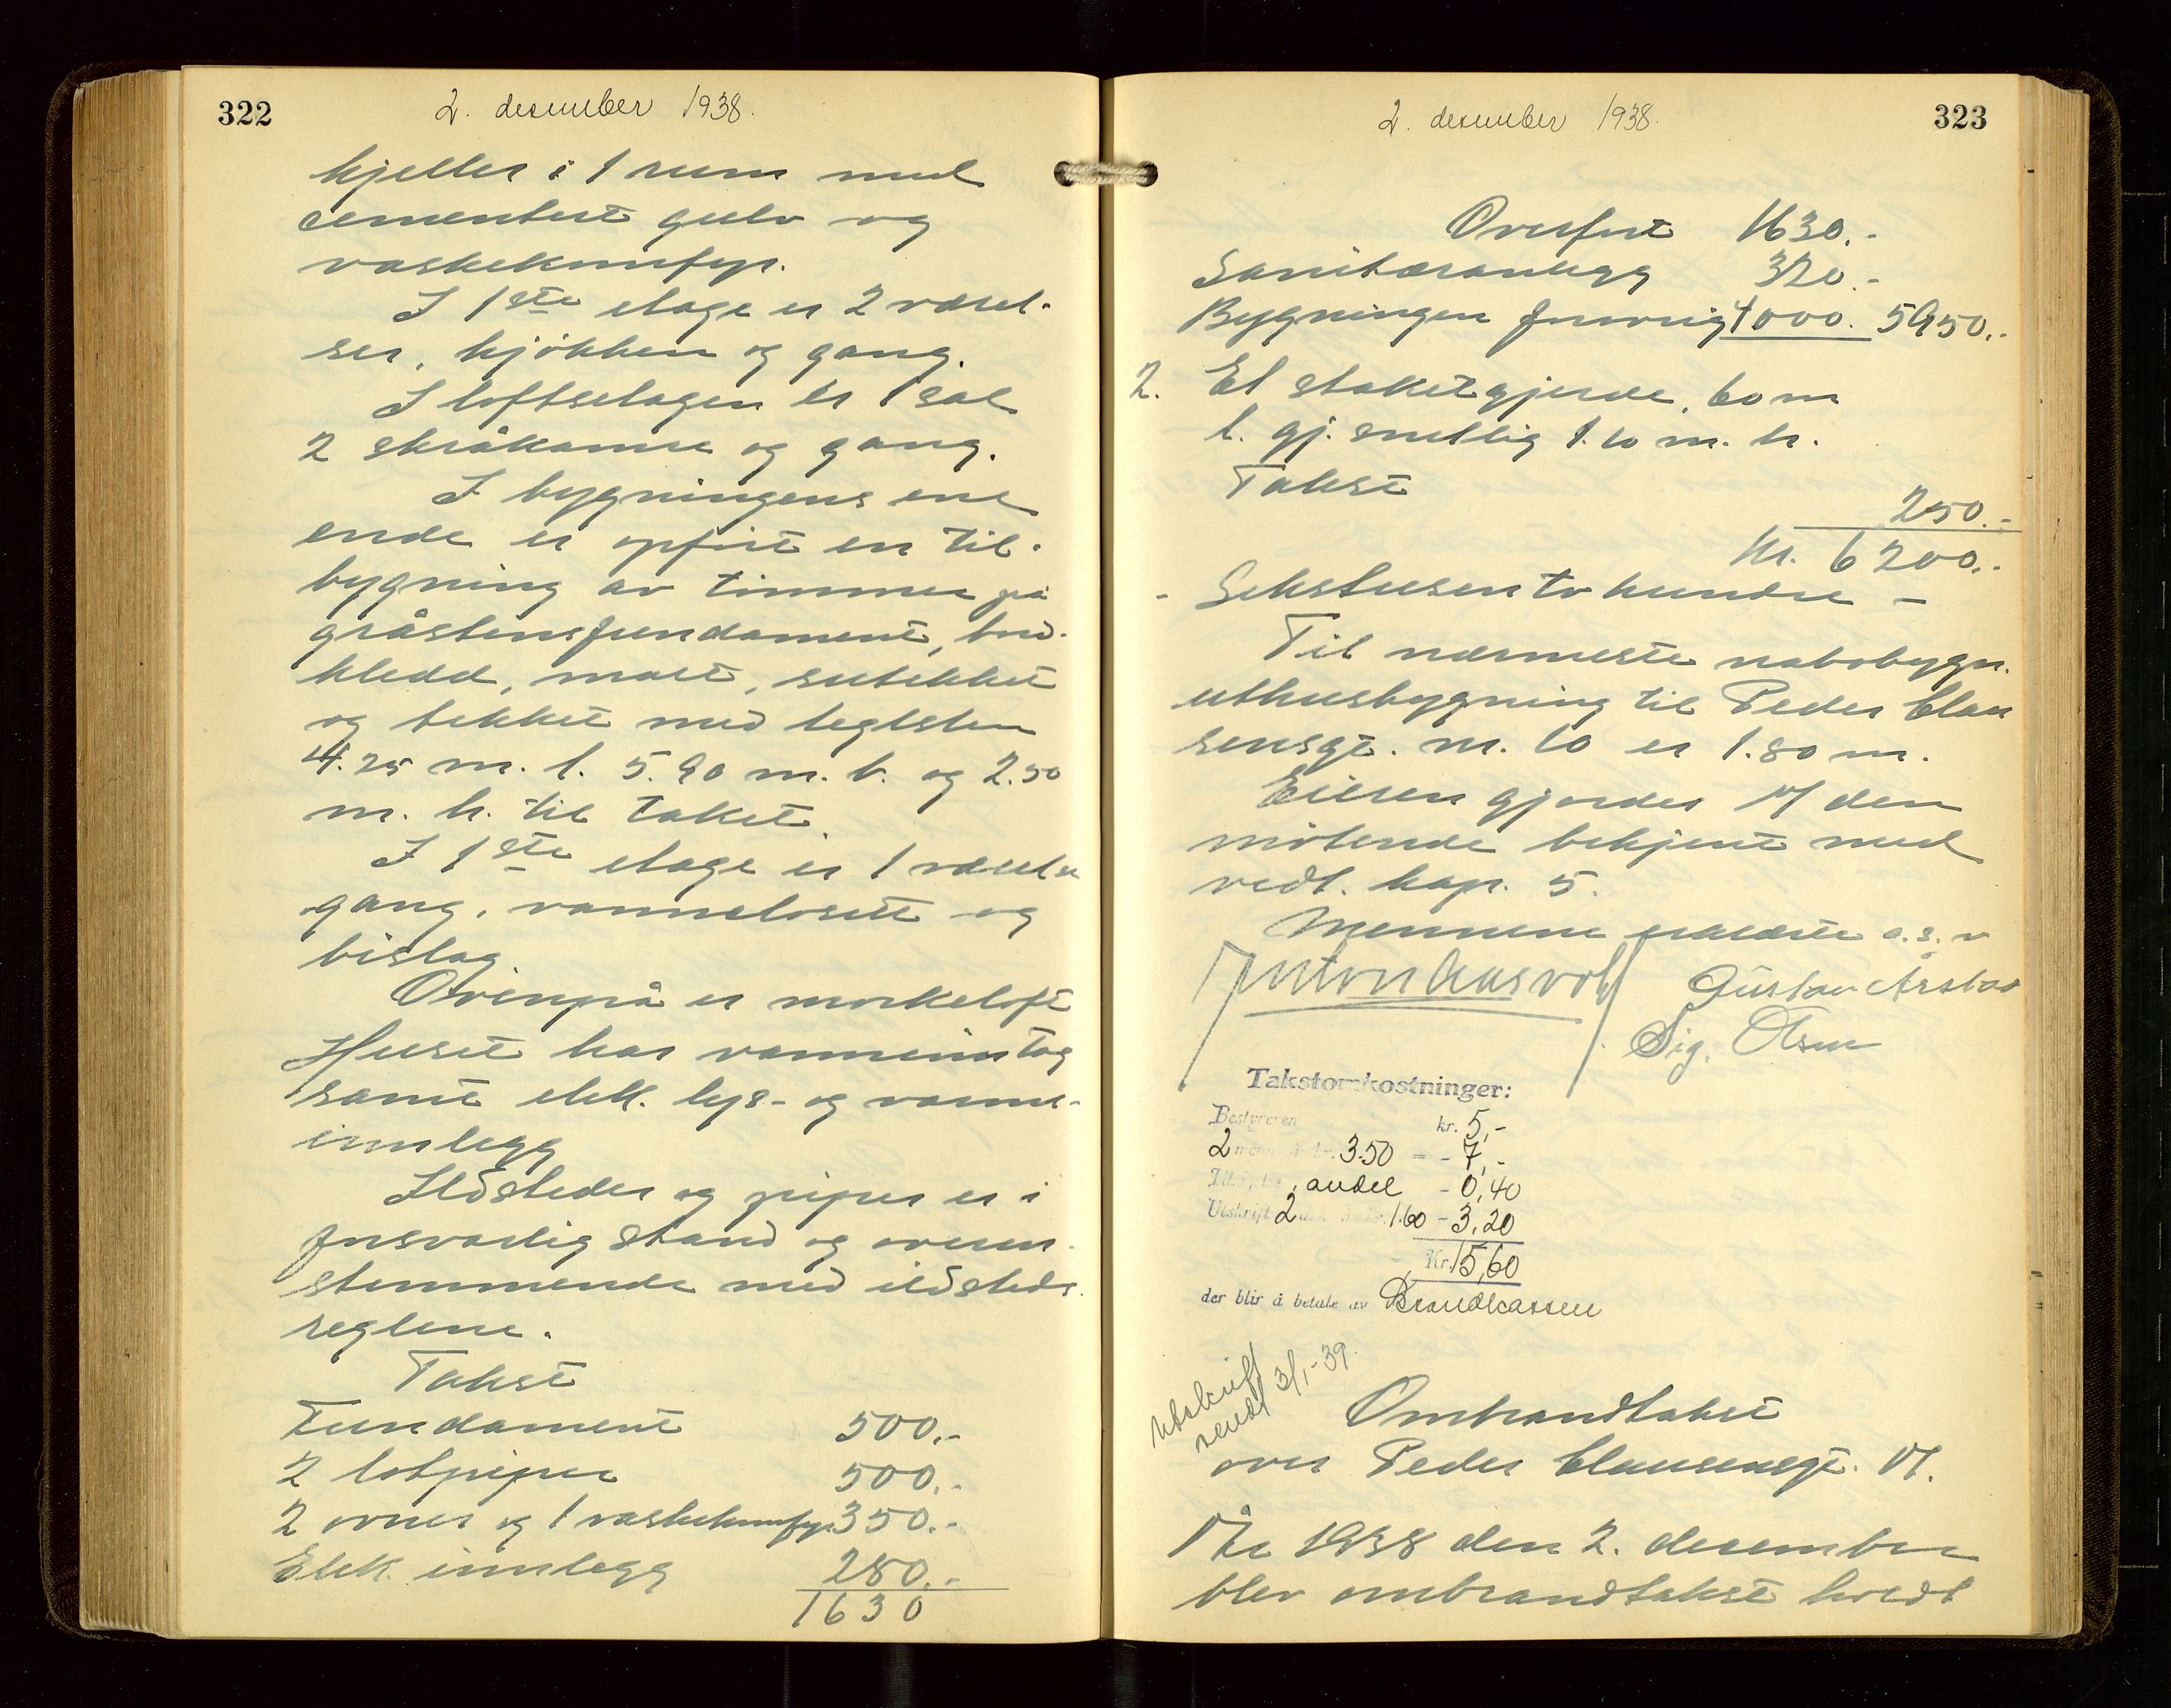 322
2. desember 1938.
kjeller i 1 rum med
sementert gulv og
vaskekomfyr.
I 1ste etage er 2 værel-
ser, kjøkken og gang.
I loftsetagen er 1 sal
2 skråkamre og gang.
I bygningens ene
ende er opført en til-
bygning av tømmer på
gråstensfundament, bord-
kledd, malt, sutekket
og tekket med teglsten
4.25 m. l. 5.90 m. b. og 2.50
m. h. til taket.
I 1ste etage er 1 værelse
gang, vannclosett og
bislag
Ovenpå er mørkeloft
Huset har vanninntag
samt elek. lys- og varme-
innlegg
Ildsteder og piper er i
forsvarlig stand og overen-
stemmende med ildsteds-
reglene.
Takst
Fundament 500.-
2 løbpiper 500.-
2 ovner og 1 vaskekomfyr 350.-
Elek. innlegg 280.-
1630
2. desember 1938.
323
Overført 1630.-
Sanitæranlegg 320.-
Bygningen forøvrig 4000. 5950.-
2. Et stakitgjerde, 60 m
l. gj. snitlig 1.10 m. h.
Takst
250.-
Kr. 6200.-
- Sekstusentohundre -
Til nærmeste nabobygn.
uthusbygning til Peder Clau
sensgt. nr. 10 er 1.80 m.
Eieren gjordes v/ den
møtende bekjent med
vedt. kap. 5.
Mennene erklærte o.s.v
Anton Aasvold Gustav Årstad
Sig. Olsen
Takstomkostninger:
Bestyreren kr. 5,-
2 menn à kr. 3.50 = - 7,-
andel - 0,40
Utskrift 2 ark à kr. 1.60 - 3,20
Kr. 15,60
der blir å betale av Brandkassen
Utskrift
sendt 3/1-39.
Ombrandtakst
over Peder Clausensgt. 17.
År 1938 den 2. desember
blev ombrandtakst holdt